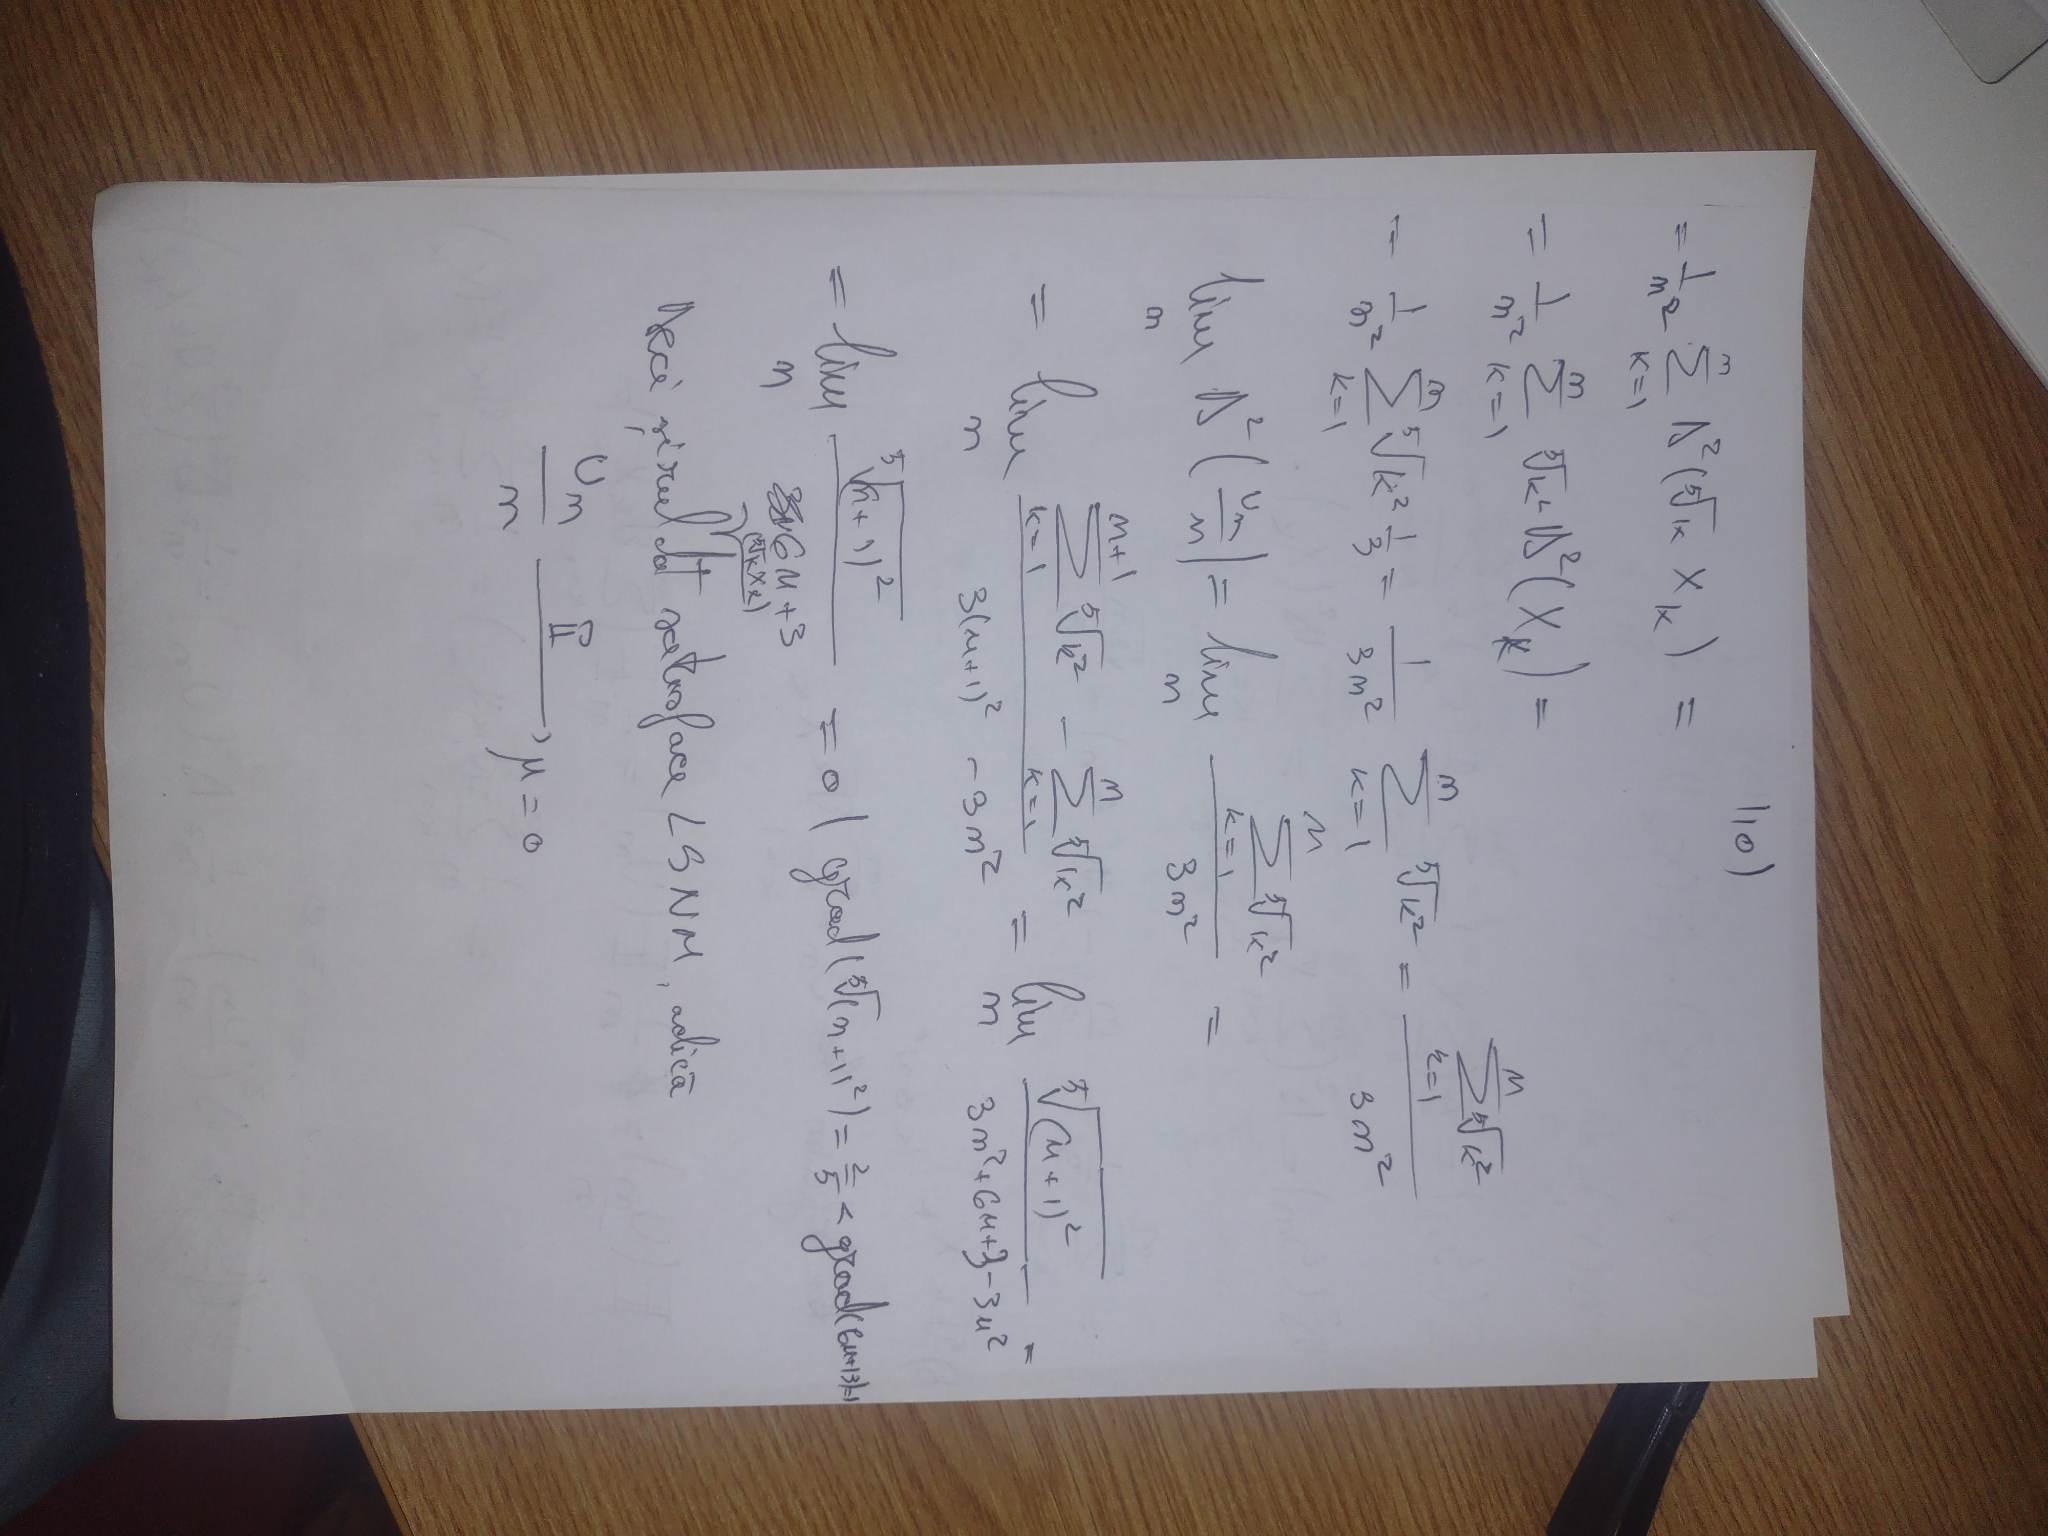 110)
= 1/n² ∑_{k=1}^{n} D²(⁵√k X_k) =
= 1/n² ∑_{k=1}^{n} ⁵√k² D²(X_k) =
= 1/n² ∑_{k=1}^{n} ⁵√k² 1/3 = 1/3n² ∑_{k=1}^{n} ⁵√k² = ∑_{k=1}^{n} ⁵√k² / 3n²
lim_n D²(U_n/n) = lim_n ∑_{k=1}^{n} ⁵√k² / 3n² =
= lim_n (∑_{k=1}^{n+1} ⁵√k² - ∑_{k=1}^{n} ⁵√k²) / (3(n+1)² - 3n²) = lim_n ⁵√(n+1)² / (3n²+6n+3-3n²) =
= lim_n ⁵√(n+1)² / (6n+3) = 0 | grad(⁵√(n+1)²) = 2/5 < grad(6n+3)=1
(⁵√k X_k)
Deci șirul dat satisface LSNM, adică
U_n/n —P→ μ = 0